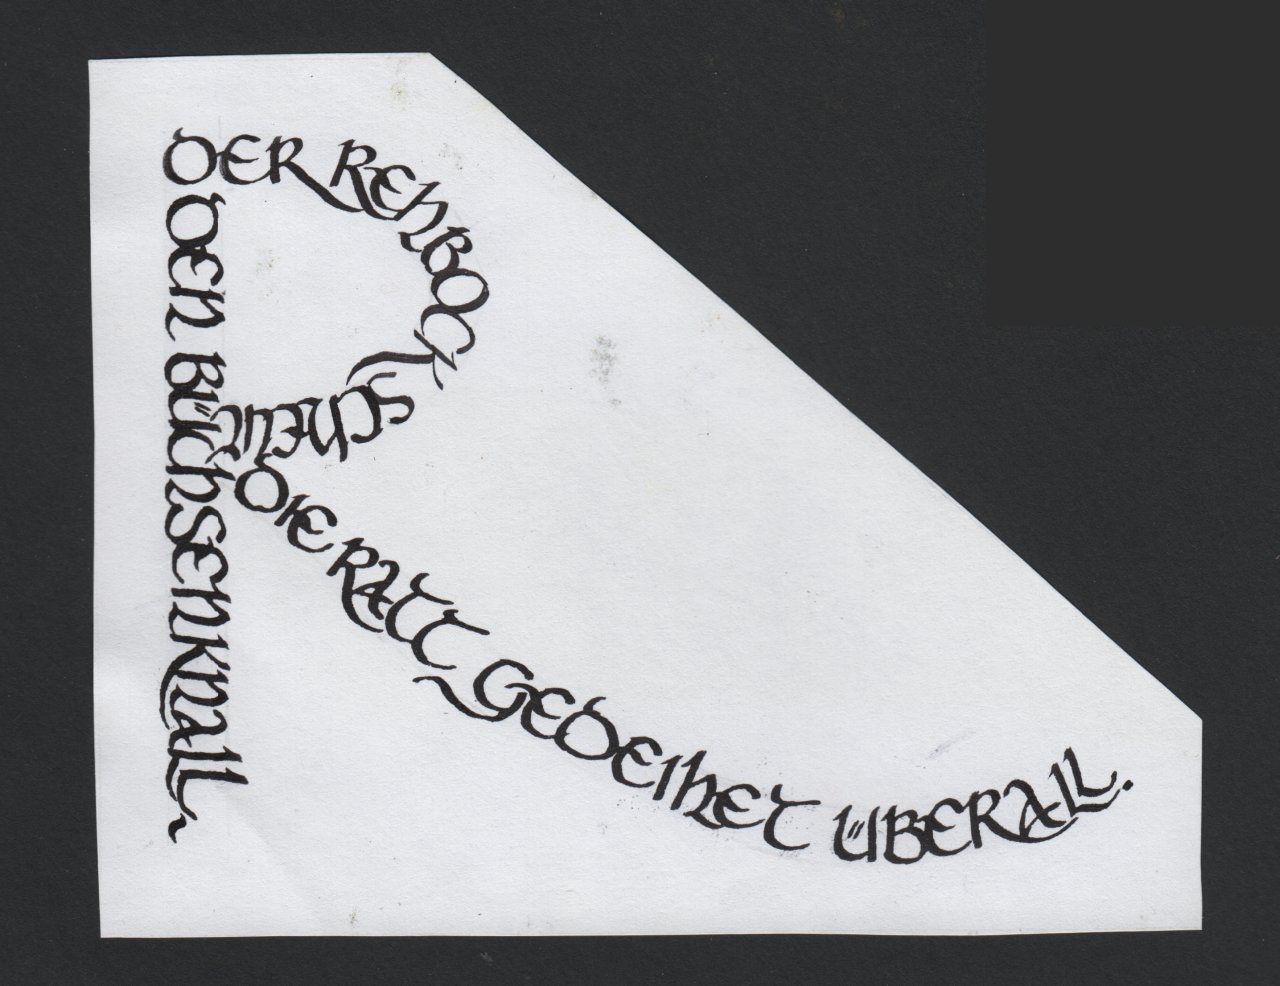 DER REHBOCK SCHEUT
DEN BÜCHSENKNALL
DIE RATT GEDEIHET ÜBERALL.